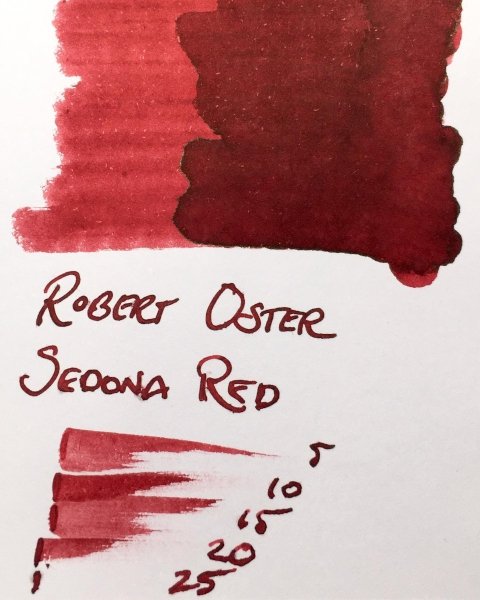 ROBERT OSTER
SEDONA RED
5
10
15
20
25